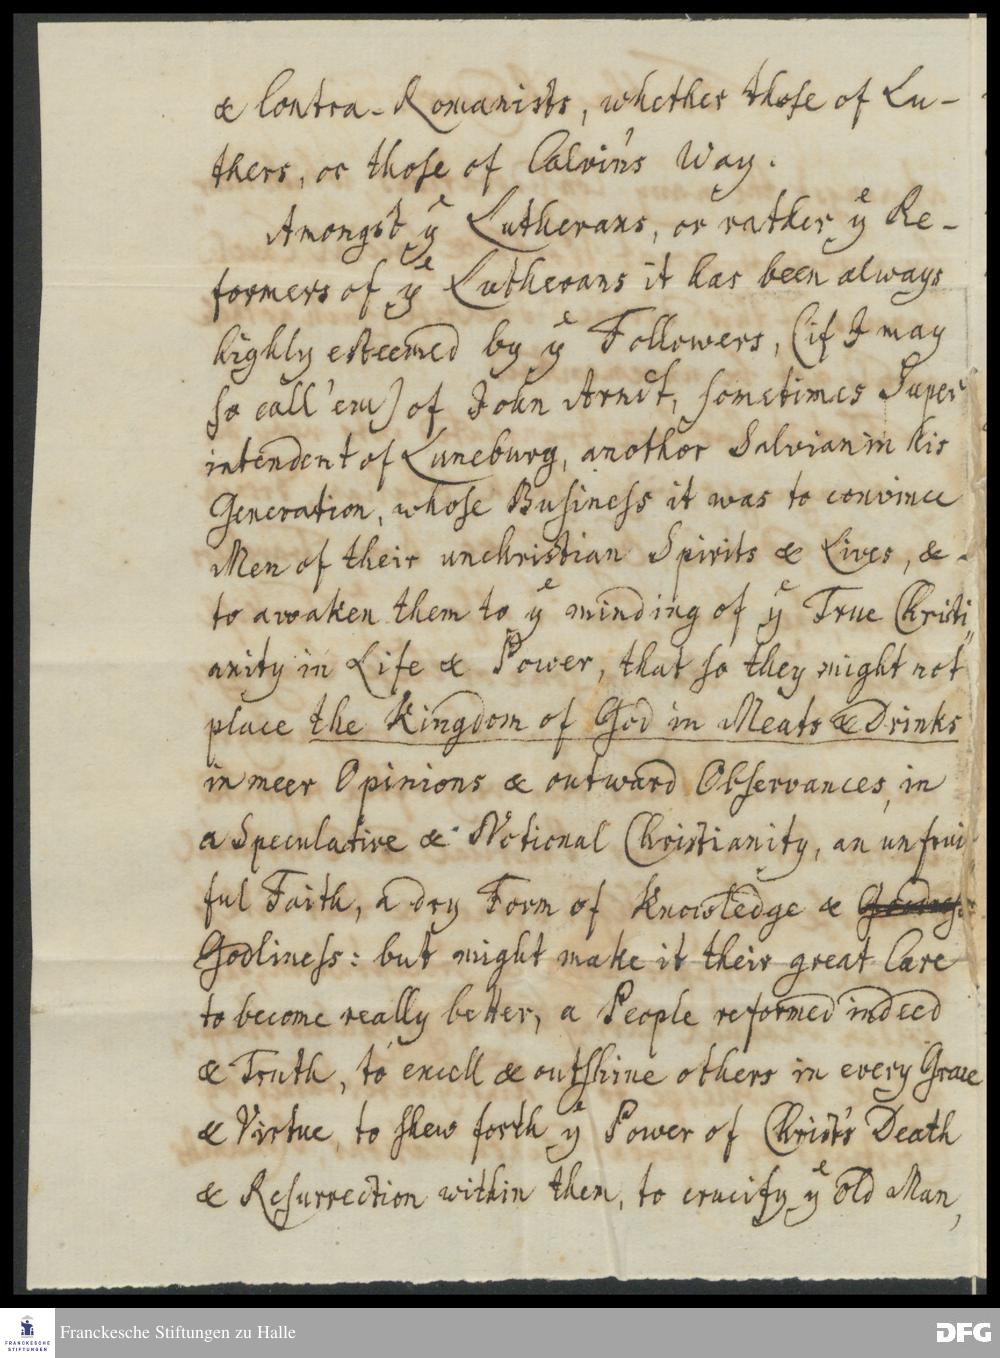 & Contra-Romanists, whether those of Lu-
thers, or those of Calvin's Way.
Amongst yᵉ Lutherans, or rather yᵉ Re-
formers of yᵉ Lutherans it has been always
highly esteemed by yᵉ Followers, (if I may
so call 'em) of John Arndt, sometimes Super
intendent of Luneburg, another Salvian in his
Generation, whose Business it was to convince
Men of their unchristian Spirits & Lives, & -
to awaken them to yᵉ minding of yᵉ True Christi
anity in Life & Power, that so they might not
place the Kingdom of God in Meats & Drinks
in meer Opinions & outward Observances, in
a Speculative & Notional Christianity, an unfrui
ful Faith, a dry Form of Knowledge &
Godliness: but might make it their great Care
to become really better, a People reformed indeed
& Truth, to excell & outshine others in every Grace
& Virtue, to shew forth yᵉ Power of Christ's Death
& Resurrection within them, to crucify yᵉ old Man,
FRANCKESCHE
STIFTUNGEN
Franckesche Stiftungen zu Halle
DFG